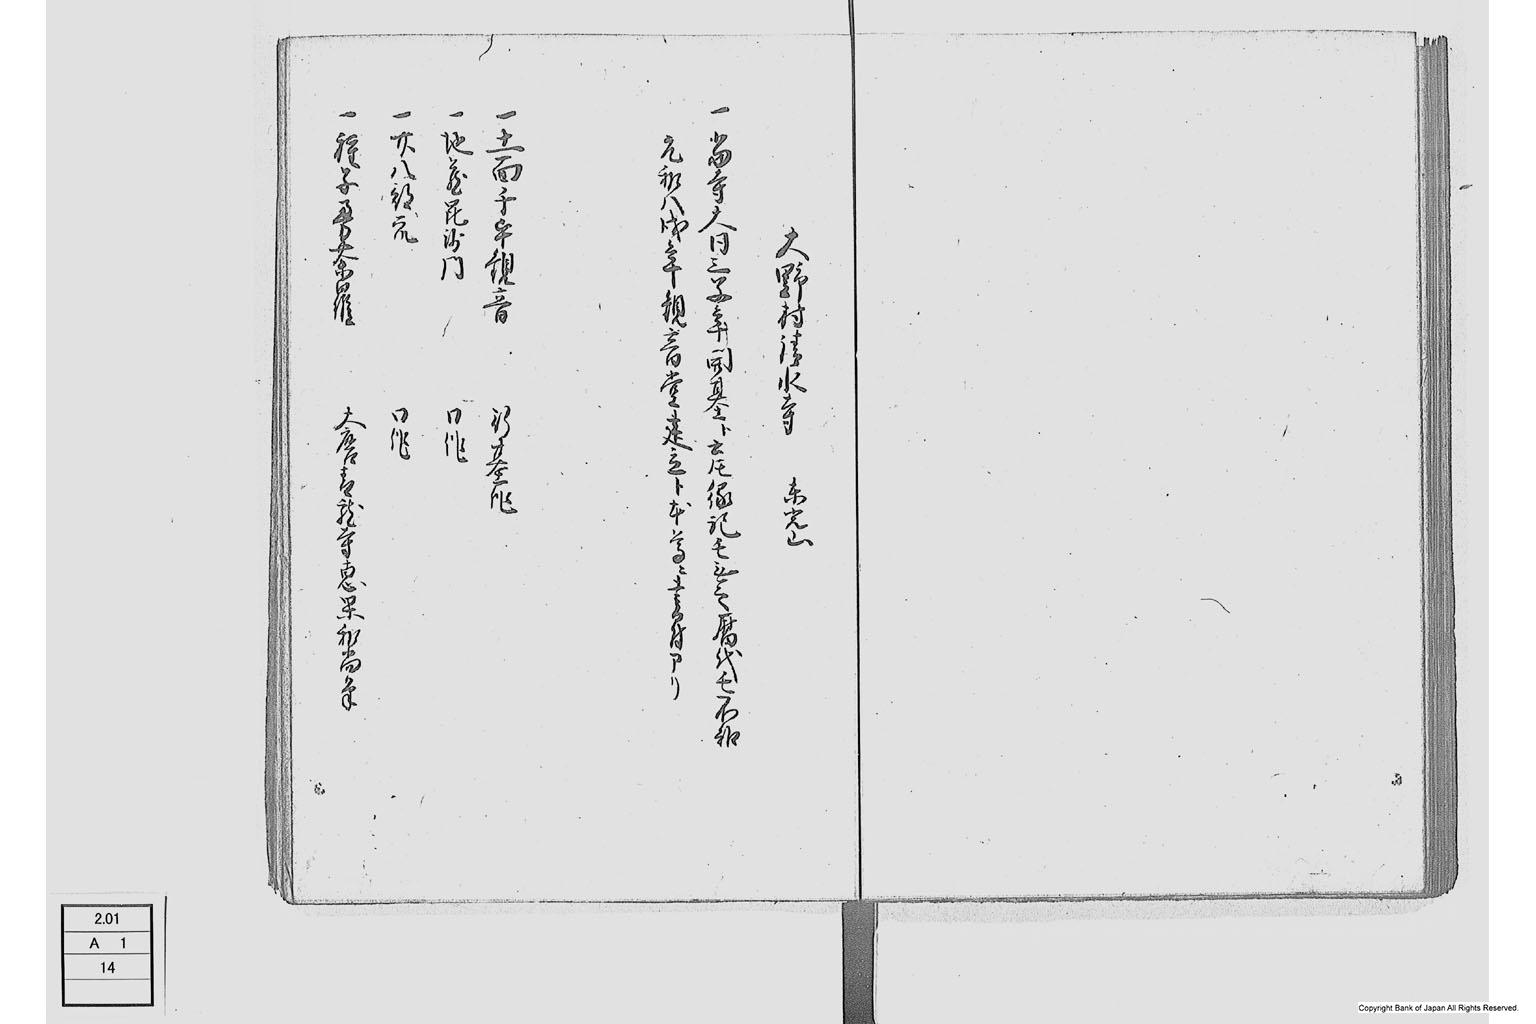 大野村清水寺　東光山
一当寺大同三子年開基ト云広縁記モ無之暦代モ不知
元和八戌年観音堂建立ト本尊ニ書付アリ
一十一面千手観音　行基作
一地蔵毘沙門　同作
一廿八部衆　同作
一種子曼荼羅　大唐青龍寺恵果和尚筆
2.01
A 1
14
Copyright Bank of Japan All Rights Reserved.